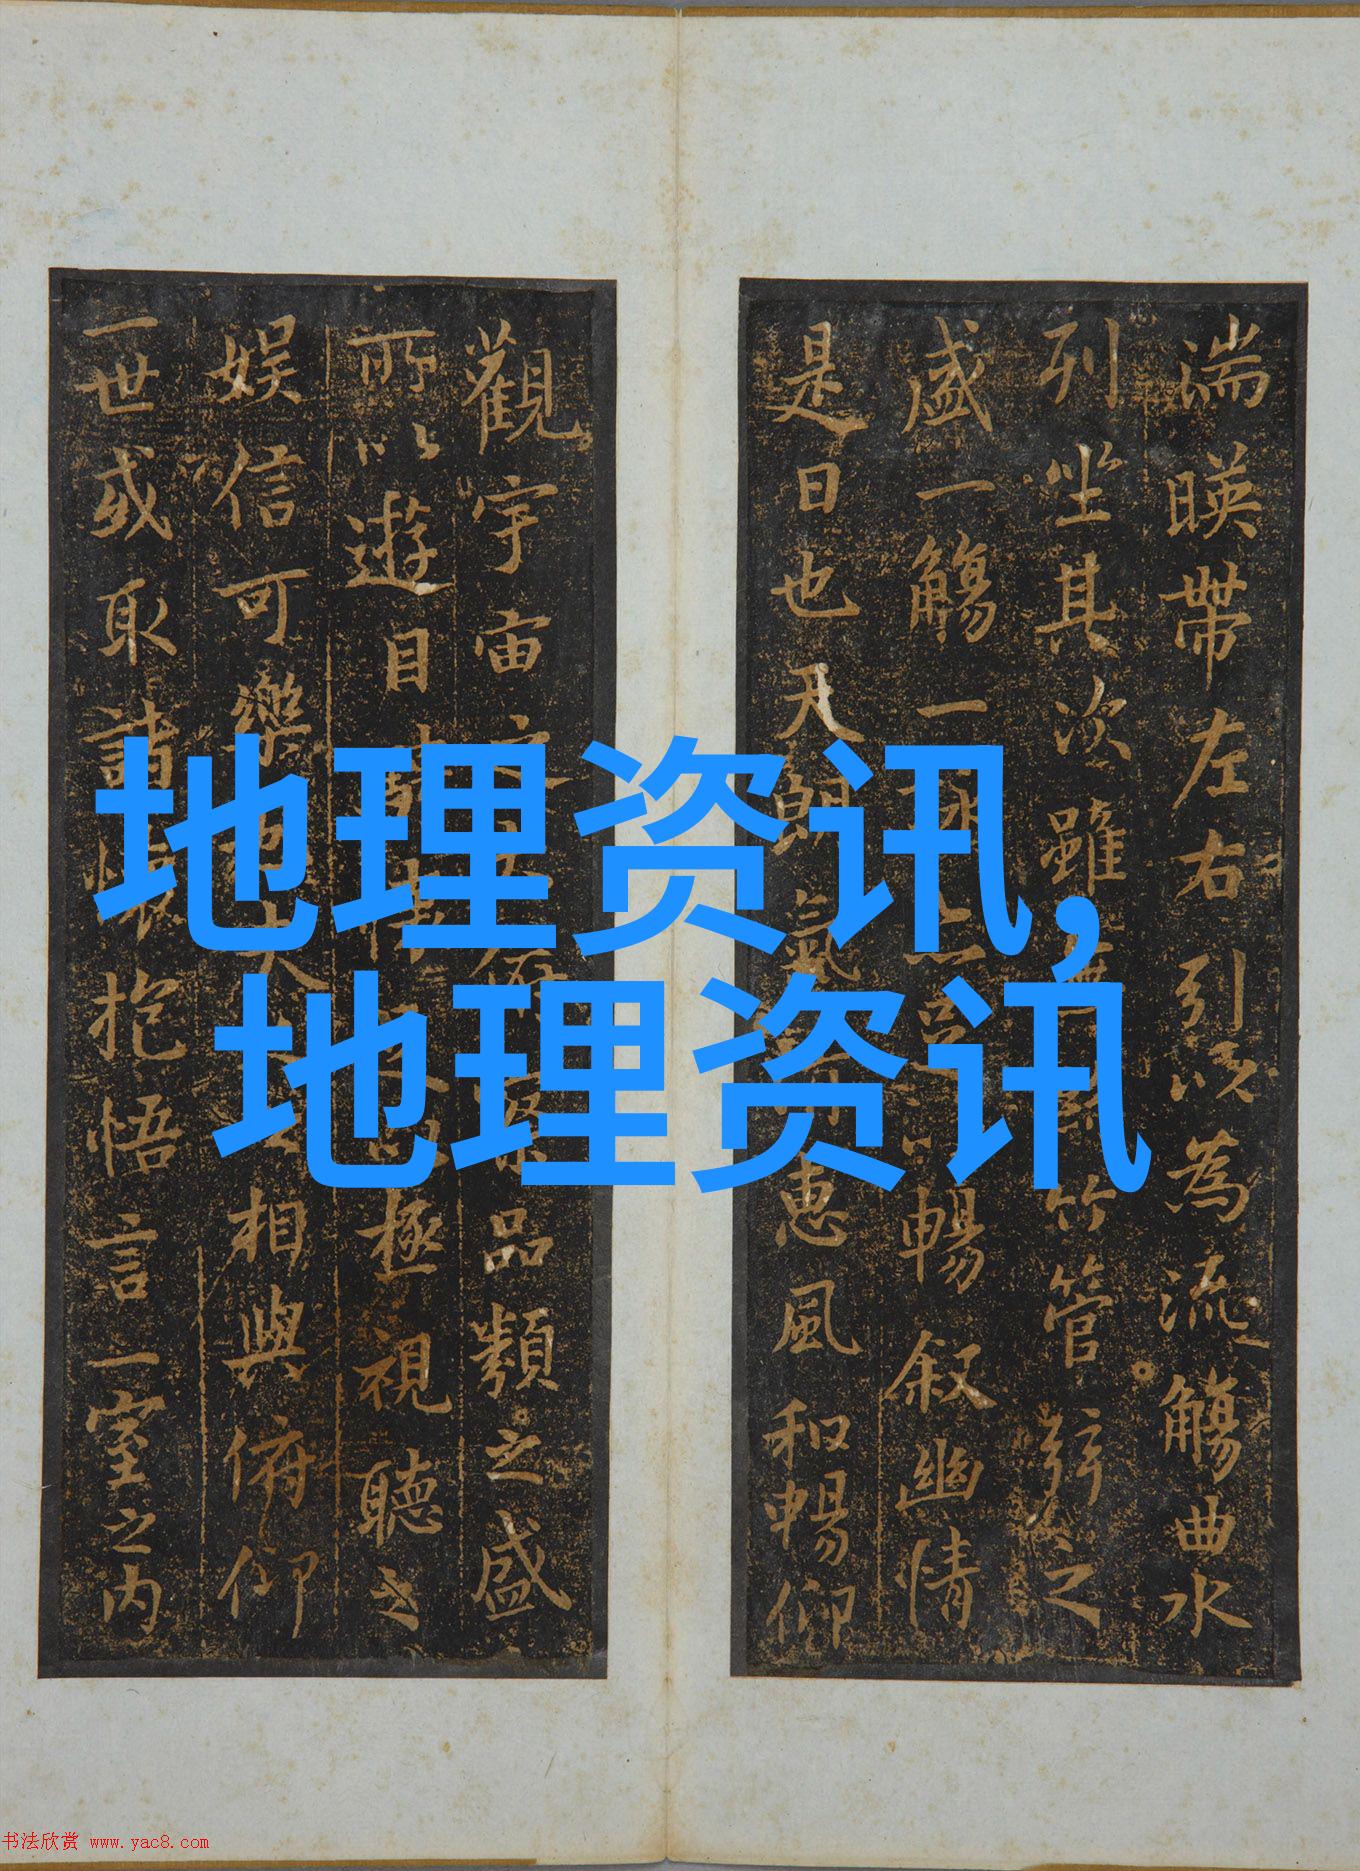 湍暎帶左右引以為流觴曲水
列坐其次雖無竹管弦之
盛一觴一詠暢叙幽情
是日也天朗氣惠風和暢仰
觀宇宙之品類之盛
所以遊目極視聽之
娛信可樂相與俯仰
一世或取諸懷抱悟言一室之内
地理资讯,
地理资讯
书法欣赏 www.yac8.com